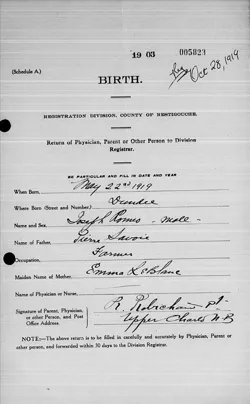 19 03 005823
Oct 28, 1919
(Schedule A.)
BIRTH.
REGISTRATION DIVISION, COUNTY OF RESTIGOUCHE.
Return of Physician, Parent or Other Person to Division
Registrar.
BE PARTICULAR AND FILL IN DATE AND YEAR
When Born, May 22nd 1919
Where Born (Street and Number) Dundee
Name and Sex, Joseph Romeo - Male -
Name of Father, Pierre Savoie
Occupation, Farmer
Maiden Name of Mother, Emma LeBlanc
Name of Physician or Nurse,
Signature of Parent, Physician,
or other Person, and Post
Office Address.
R. Robichaud Pt.
Upper Charlo N.B
NOTE:—The above return is to be filled in carefully and accurately by Physician, Parent or
other person, and forwarded within 30 days to the Division Registrar.